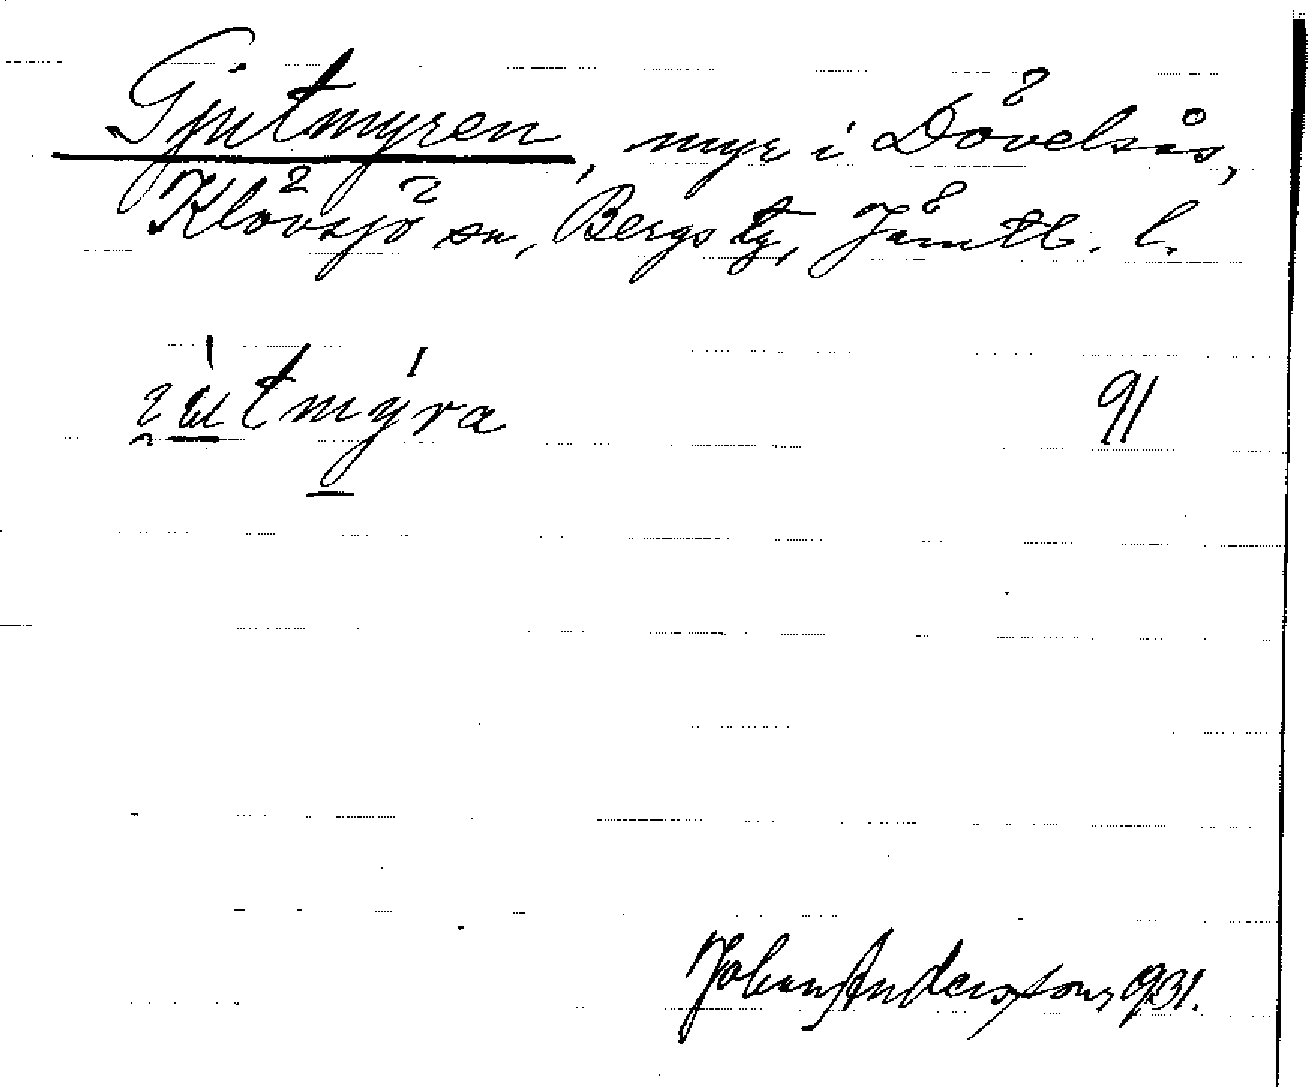 Gjutmyren, myr i Dövelsås,
Klövsjö sn, Bergs tg, Jämtl. l.
91
Johan Andersson, 1931.